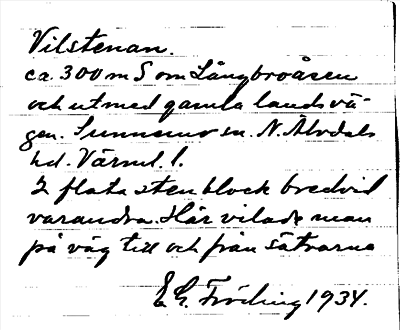 Vilstenan.
ca. 300 m S om Långbroåsen
och utmed gamla landsvä-
gen. Sunnemo sn. N. Älvdals
hd. Värml. l.
2 flata stenblock bredvid
varandra. Här vilade man
på väg till och från sätrarna
E. G. Fröding 1934.